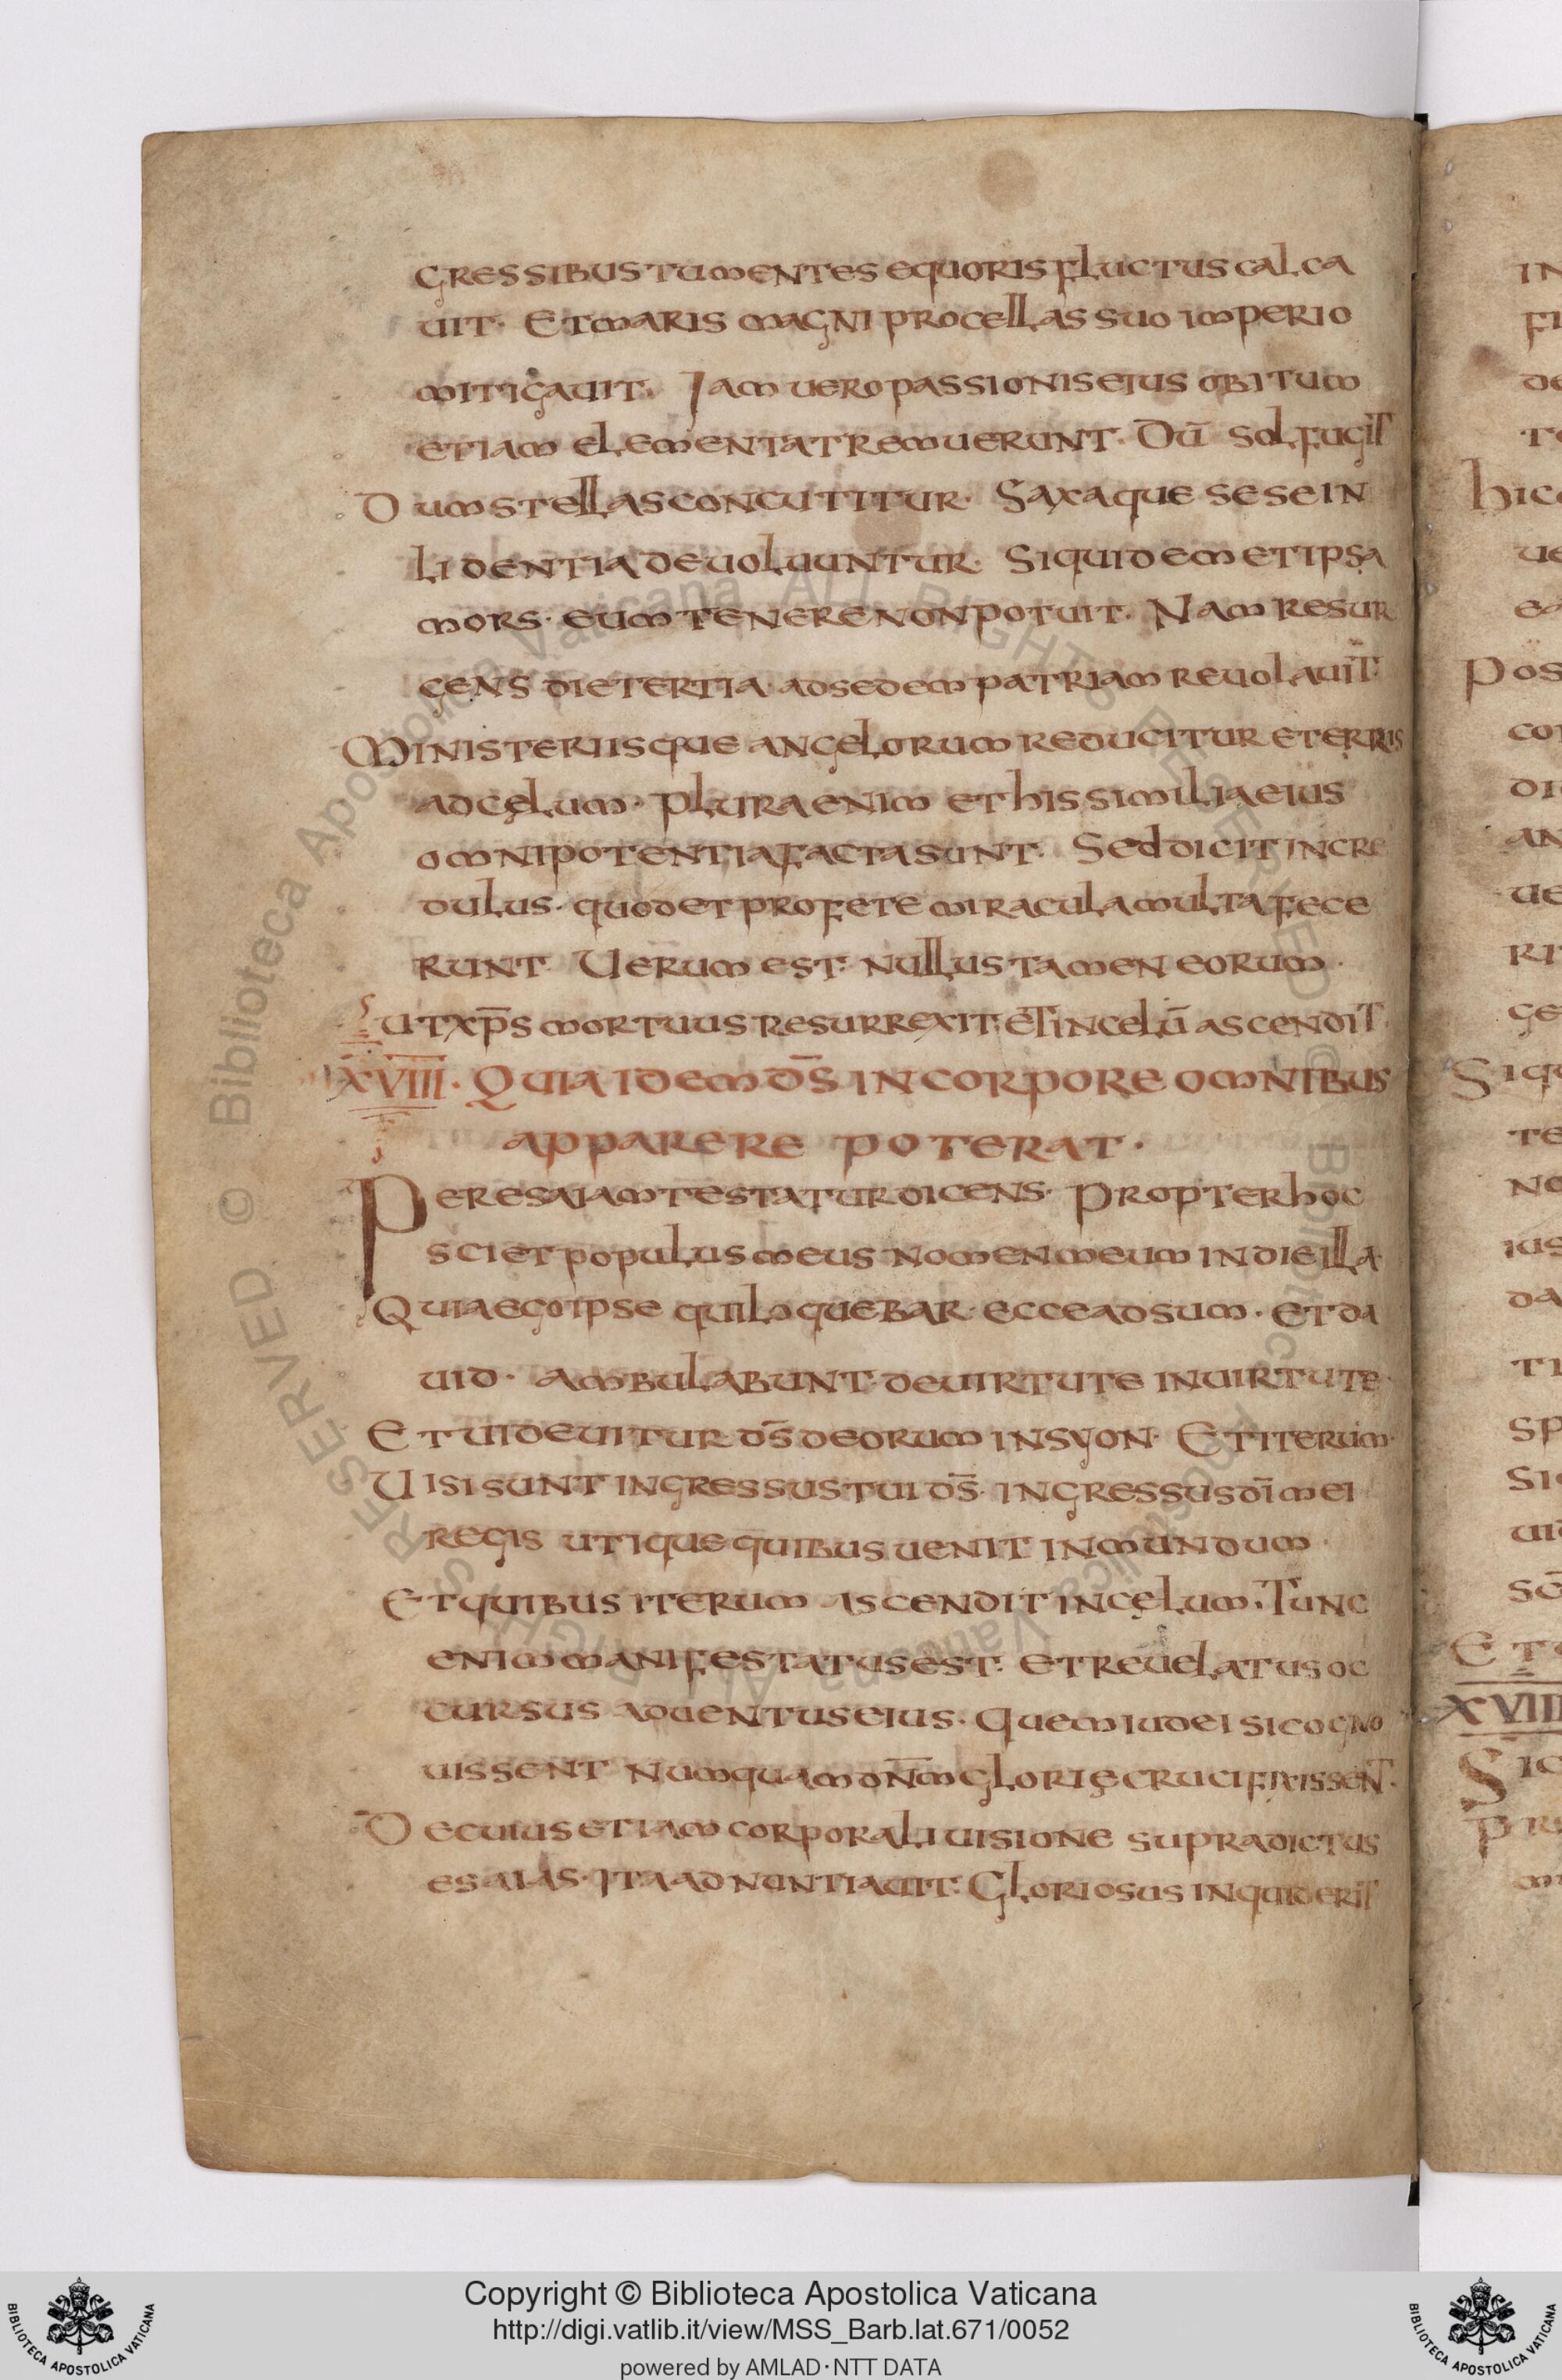 gressibus tumentes equoris fluctus calca
uit· Et maris magni procellas suo imperio
mitigauit· Iam uero passionis eius obitum
etiam elementa tremuerunt· Dū sol fugit
Dum stellas concutitur· Saxaque sese in
lidentia deuoluuntur· Siquidem et ipsa
mors· eum tenere non potuit· Nam resur
gens die tertia· ad sedem patriam reuolauit·
Ministeriisque angelorum reducitur e terris
ad cęlum· Plura enim et his similia eius
omnipotentia facta sunt· Sed dicit incre
dulus· quod et profete miracula multa fece
runt· Uerum est· nullus tamen eorum·
ut xp̄s mortuus resurrexit· et in celū ascendit·
XVIII· Quia idem d̄s in corpore omnibus
apparere poterat·
Per esaiam testatur dicens· Propter hoc
sciet populus meus nomen meum in die illa·
Quia ego ipse qui loquebar· ecce adsum· et da
uid· Ambulabunt· de uirtute in uirtute·
Et uideuitur d̄s deorum in syon· Et iterum·
Uisi sunt ingressus tui d̄s· ingressus dī mei
regis utique quibus uenit in mundum·
Et quibus iterum ascendit in cęlum· Tunc
enim manifestatus est· et reuelatus oc
cursus aduentus eius· Quem iudei si cogno
uissent numquam dn̄m glorię crucifixissent·
De cuius etiam corporali uisione supradictus
esaias· ita adnuntiauit· Gloriosus inquid erit
in
fi
de
Hic
ue
Pos
di
an
ue
ri
ge
Siq
te
no
ius
da
ti
sp
si
ui
sc̄
Et
XVIII
Sic
Copyright © Biblioteca Apostolica Vaticana
http://digi.vatlib.it/view/MSS_Barb.lat.671/0052
powered by AMLAD·NTT DATA
BIBLIOTECA APOSTOLICA VATICANA
BIBLIOTECA APOSTOLICA VATICANA
© Biblioteca Apostolica Vaticana ALL RIGHTS RESERVED
© Biblioteca Apostolica Vaticana ALL RIGHTS RESERVED